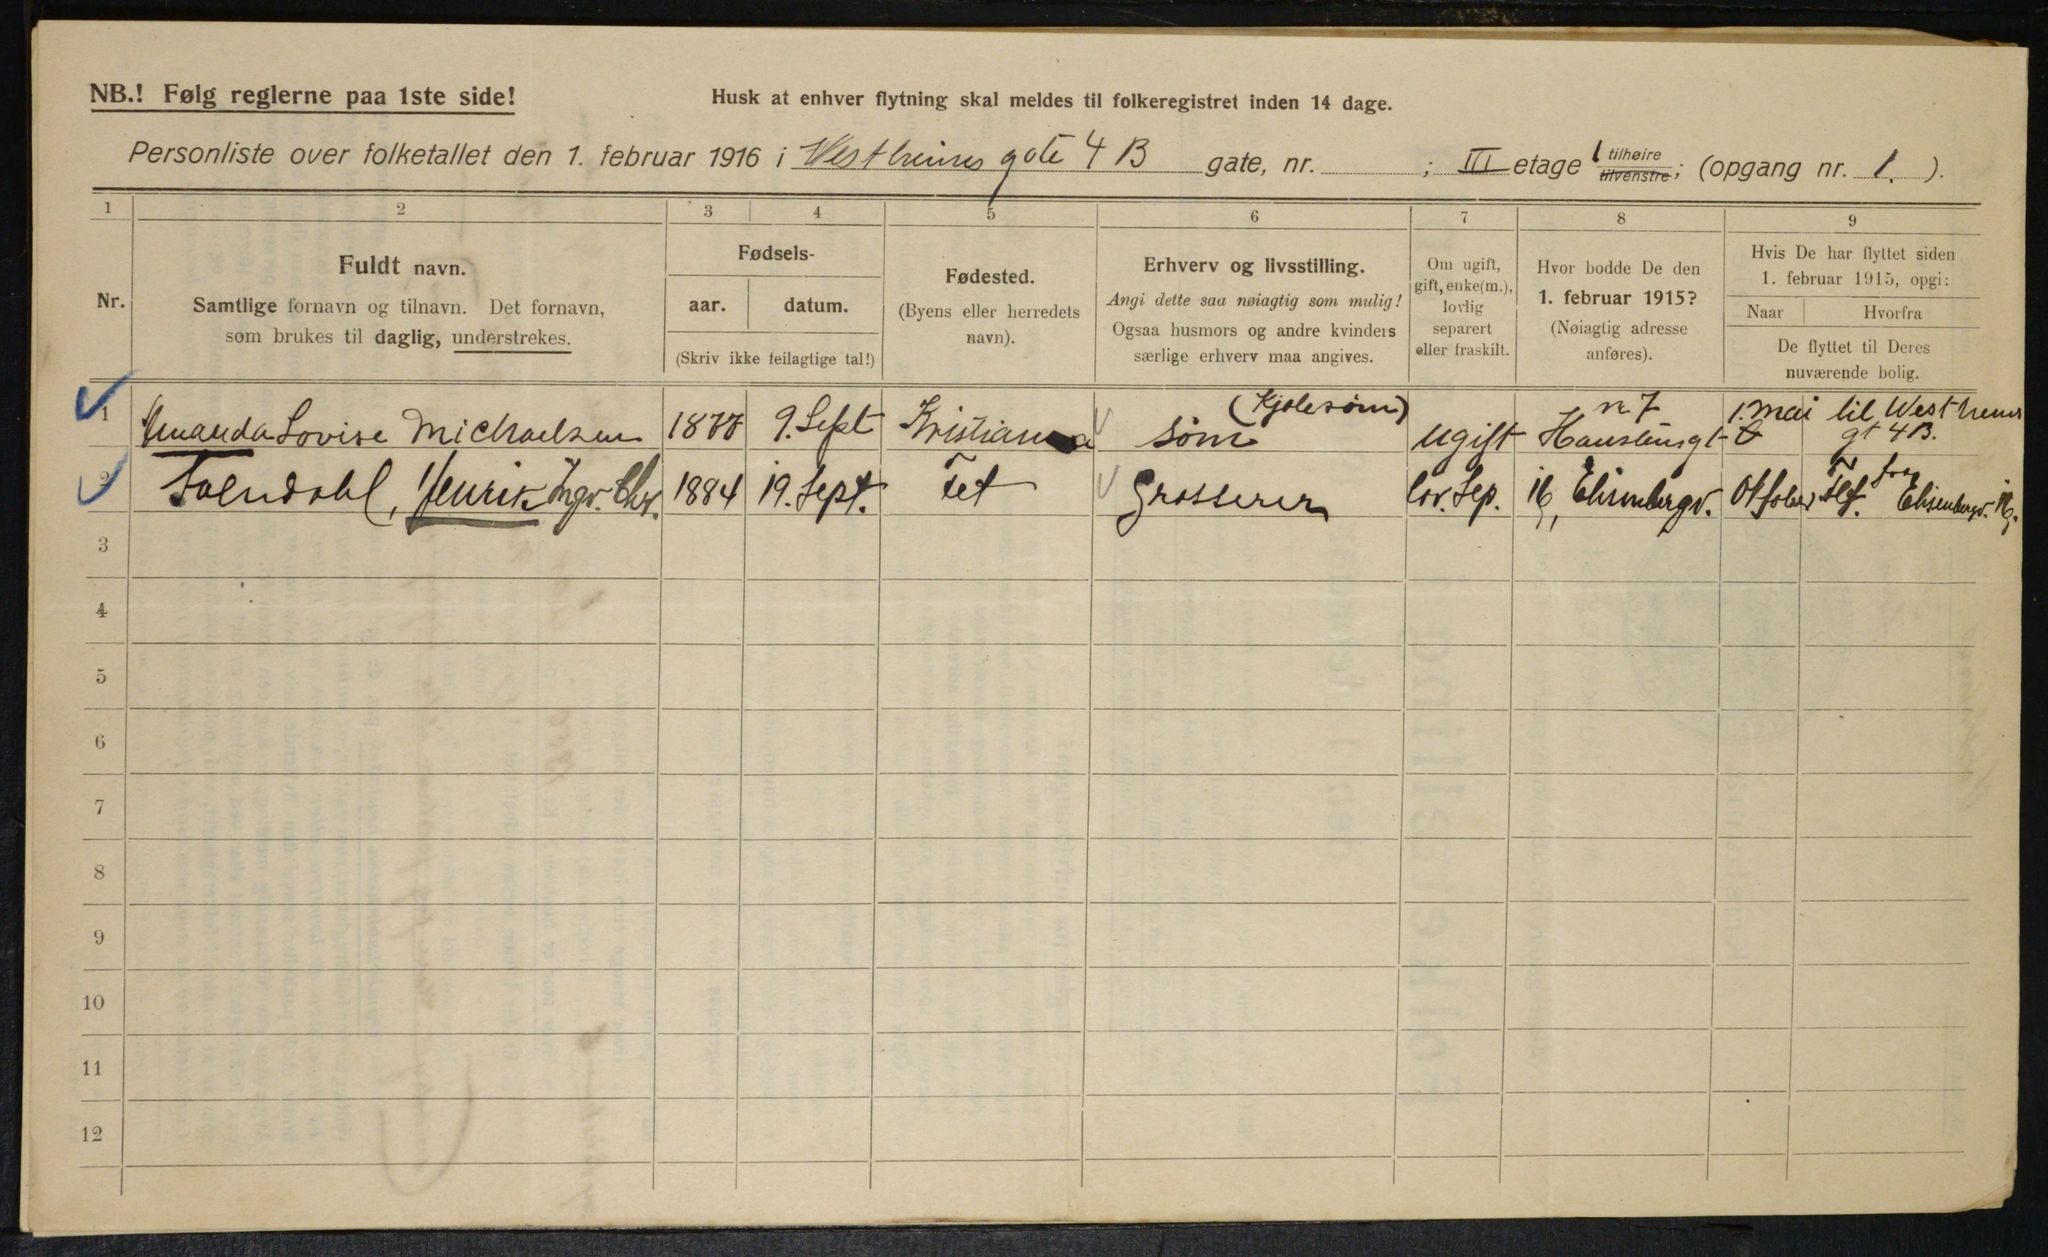 NB.! Følg reglerne paa 1ste side!
Husk at enhver flytning skal meldes til folkeregistret inden 14 dage.
Personliste over folketallet den 1. februar 1916 i Westheims gate 4 B gate, nr. ; III etage 1 tilhøire tilvenstre; (opgang nr. 1. ).
1 2 3 4 5 6 7 8 9
Nr.
Fuldt navn.
Samtlige fornavn og tilnavn. Det fornavn,
som brukes til daglig, understrekes.
Fødsels-
aar. datum.
(Skriv ikke feilagtige tal!)
Fødested.
(Byens eller herredets
navn).
Erhverv og livsstilling.
Angi dette saa nøiagtig som mulig!
Ogsaa husmors og andre kvinders
særlige erhverv maa angives.
Om ugift,
gift, enke(m.),
lovlig
separert
eller fraskilt.
Hvor bodde De den
1. februar 1915?
(Nøiagtig adresse
anføres).
Hvis De har flyttet siden
1. februar 1915, opgi:
Naar Hvorfra
De flyttet til Deres
nuværende bolig.
(Kjolesøm) n 7 1. mai til Westheims
1 Amanda Lovise Michaelsen 1877 9. Sept Kristiania søm ugift Hauslunsgt gt 4B.
2 , Henrik Ingv. Chr. 1884 19. Sept. Fet Grosserer lov. Sep. 16, Elisenbergv. Oktober fra Elisenbergv. 16.
3
4
5
6
7
8
9
10
11
12